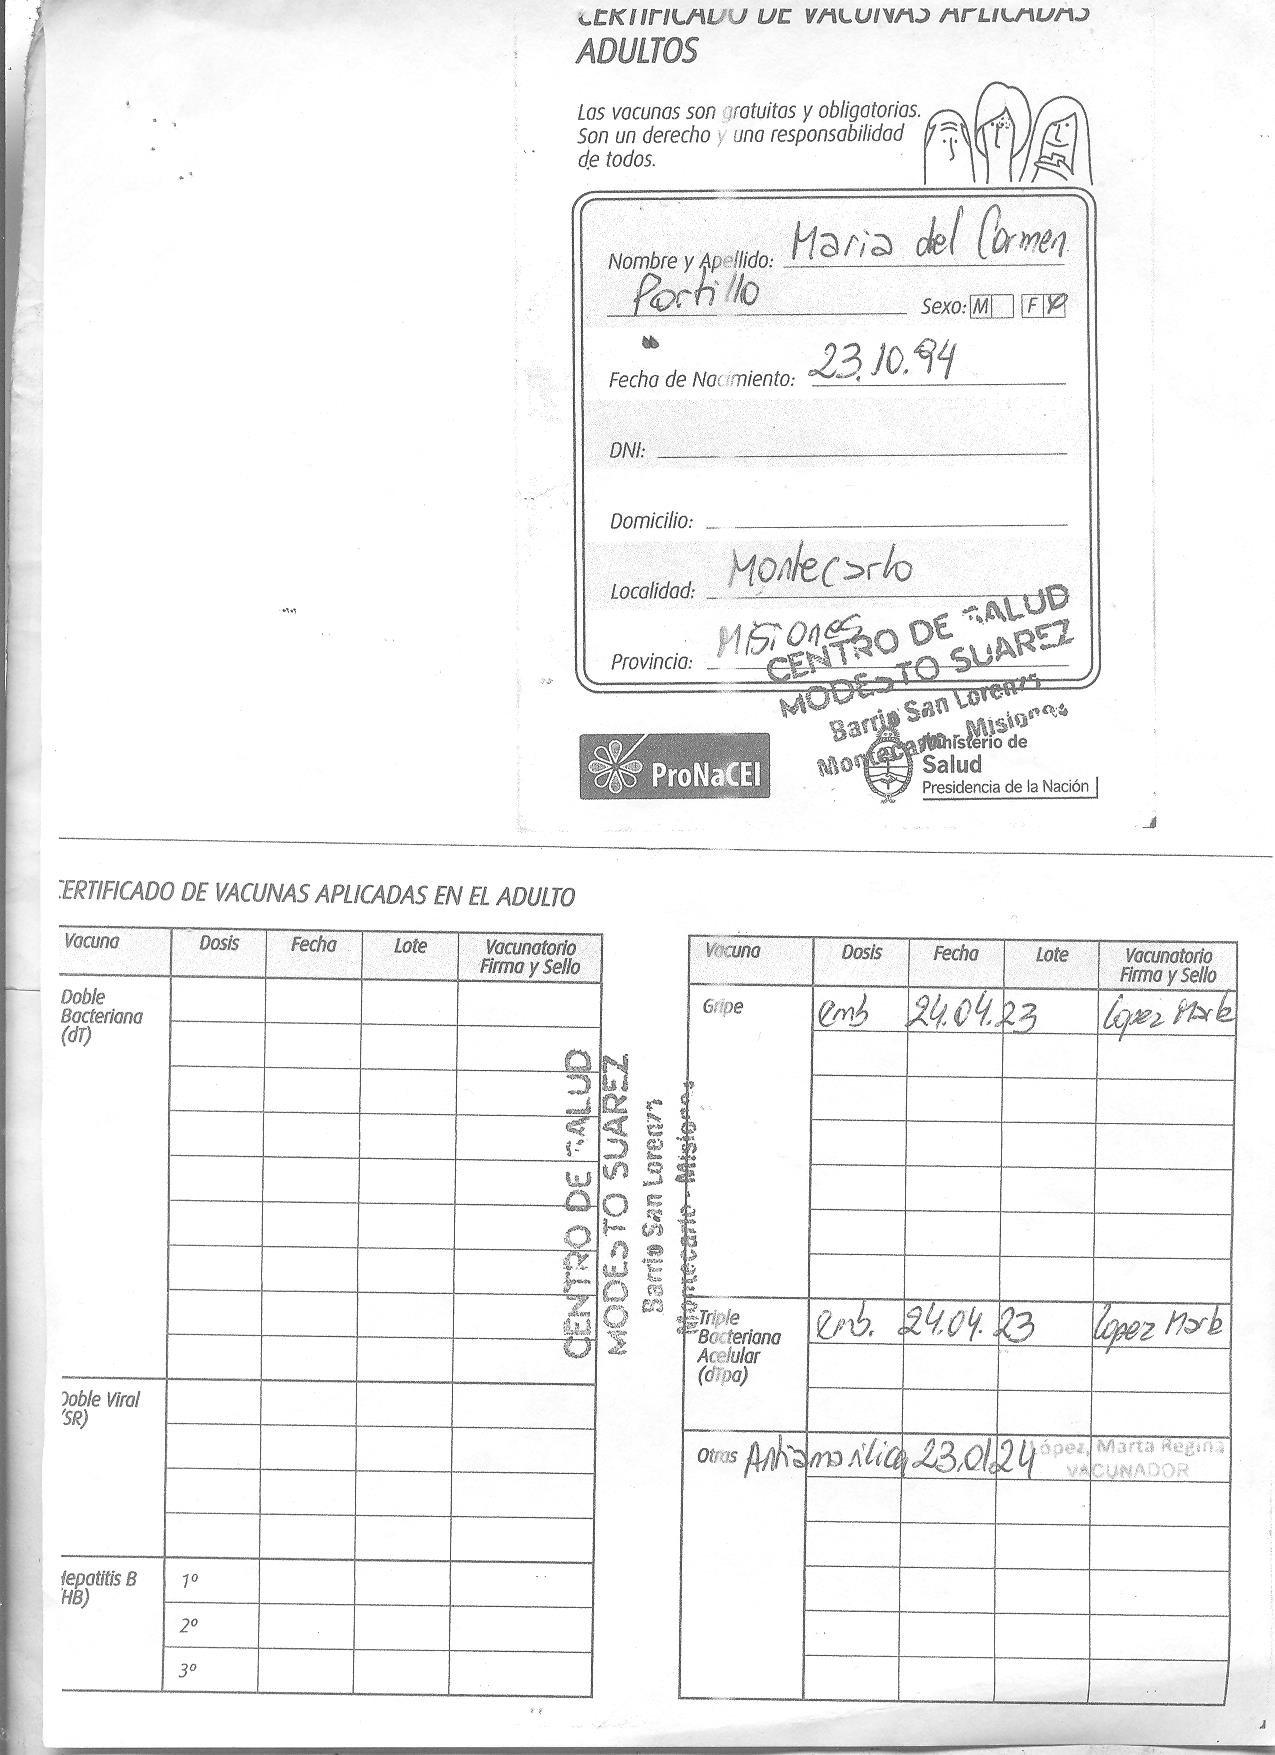 CERTIFICADO DE VACUNAS APLICADAS
ADULTOS
Las vacunas son gratuitas y obligatorias.
Son un derecho y una responsabilidad
de todos.
Nombre y Apellido: Maria del Carmen
Portillo
Sexo: M F
Fecha de Nacimiento: 23.10.94
DNI:
Domicilio:
Localidad: Montecarlo
Provincia: Misiones
CENTRO DE SALUD
MODESTO SUAREZ
Barrio San Lorenzo
Montecarlo - Misiones
ProNaCEI
Ministerio de
Salud
Presidencia de la Nación
CERTIFICADO DE VACUNAS APLICADAS EN EL ADULTO
Vacuna Dosis Fecha Lote Vacunatorio
Firma y Sello
Doble
Bacteriana
(dT)
Doble Viral
(SR)
Hepatitis B
(HB)
1º
2º
3º
CENTRO DE SALUD
MODESTO SUAREZ
Barrio San Lorenzo
Montecarlo - Misiones
Vacuna Dosis Fecha Lote Vacunatorio
Firma y Sello
Gripe emb 24.04.23 Lopez Marta
Triple emb. 24.04.23 Lopez Marta
Bacteriana
Acelular
(dTpa)
Otras Antiamarilica 23.01.24 López, Marta Regina
VACUNADOR